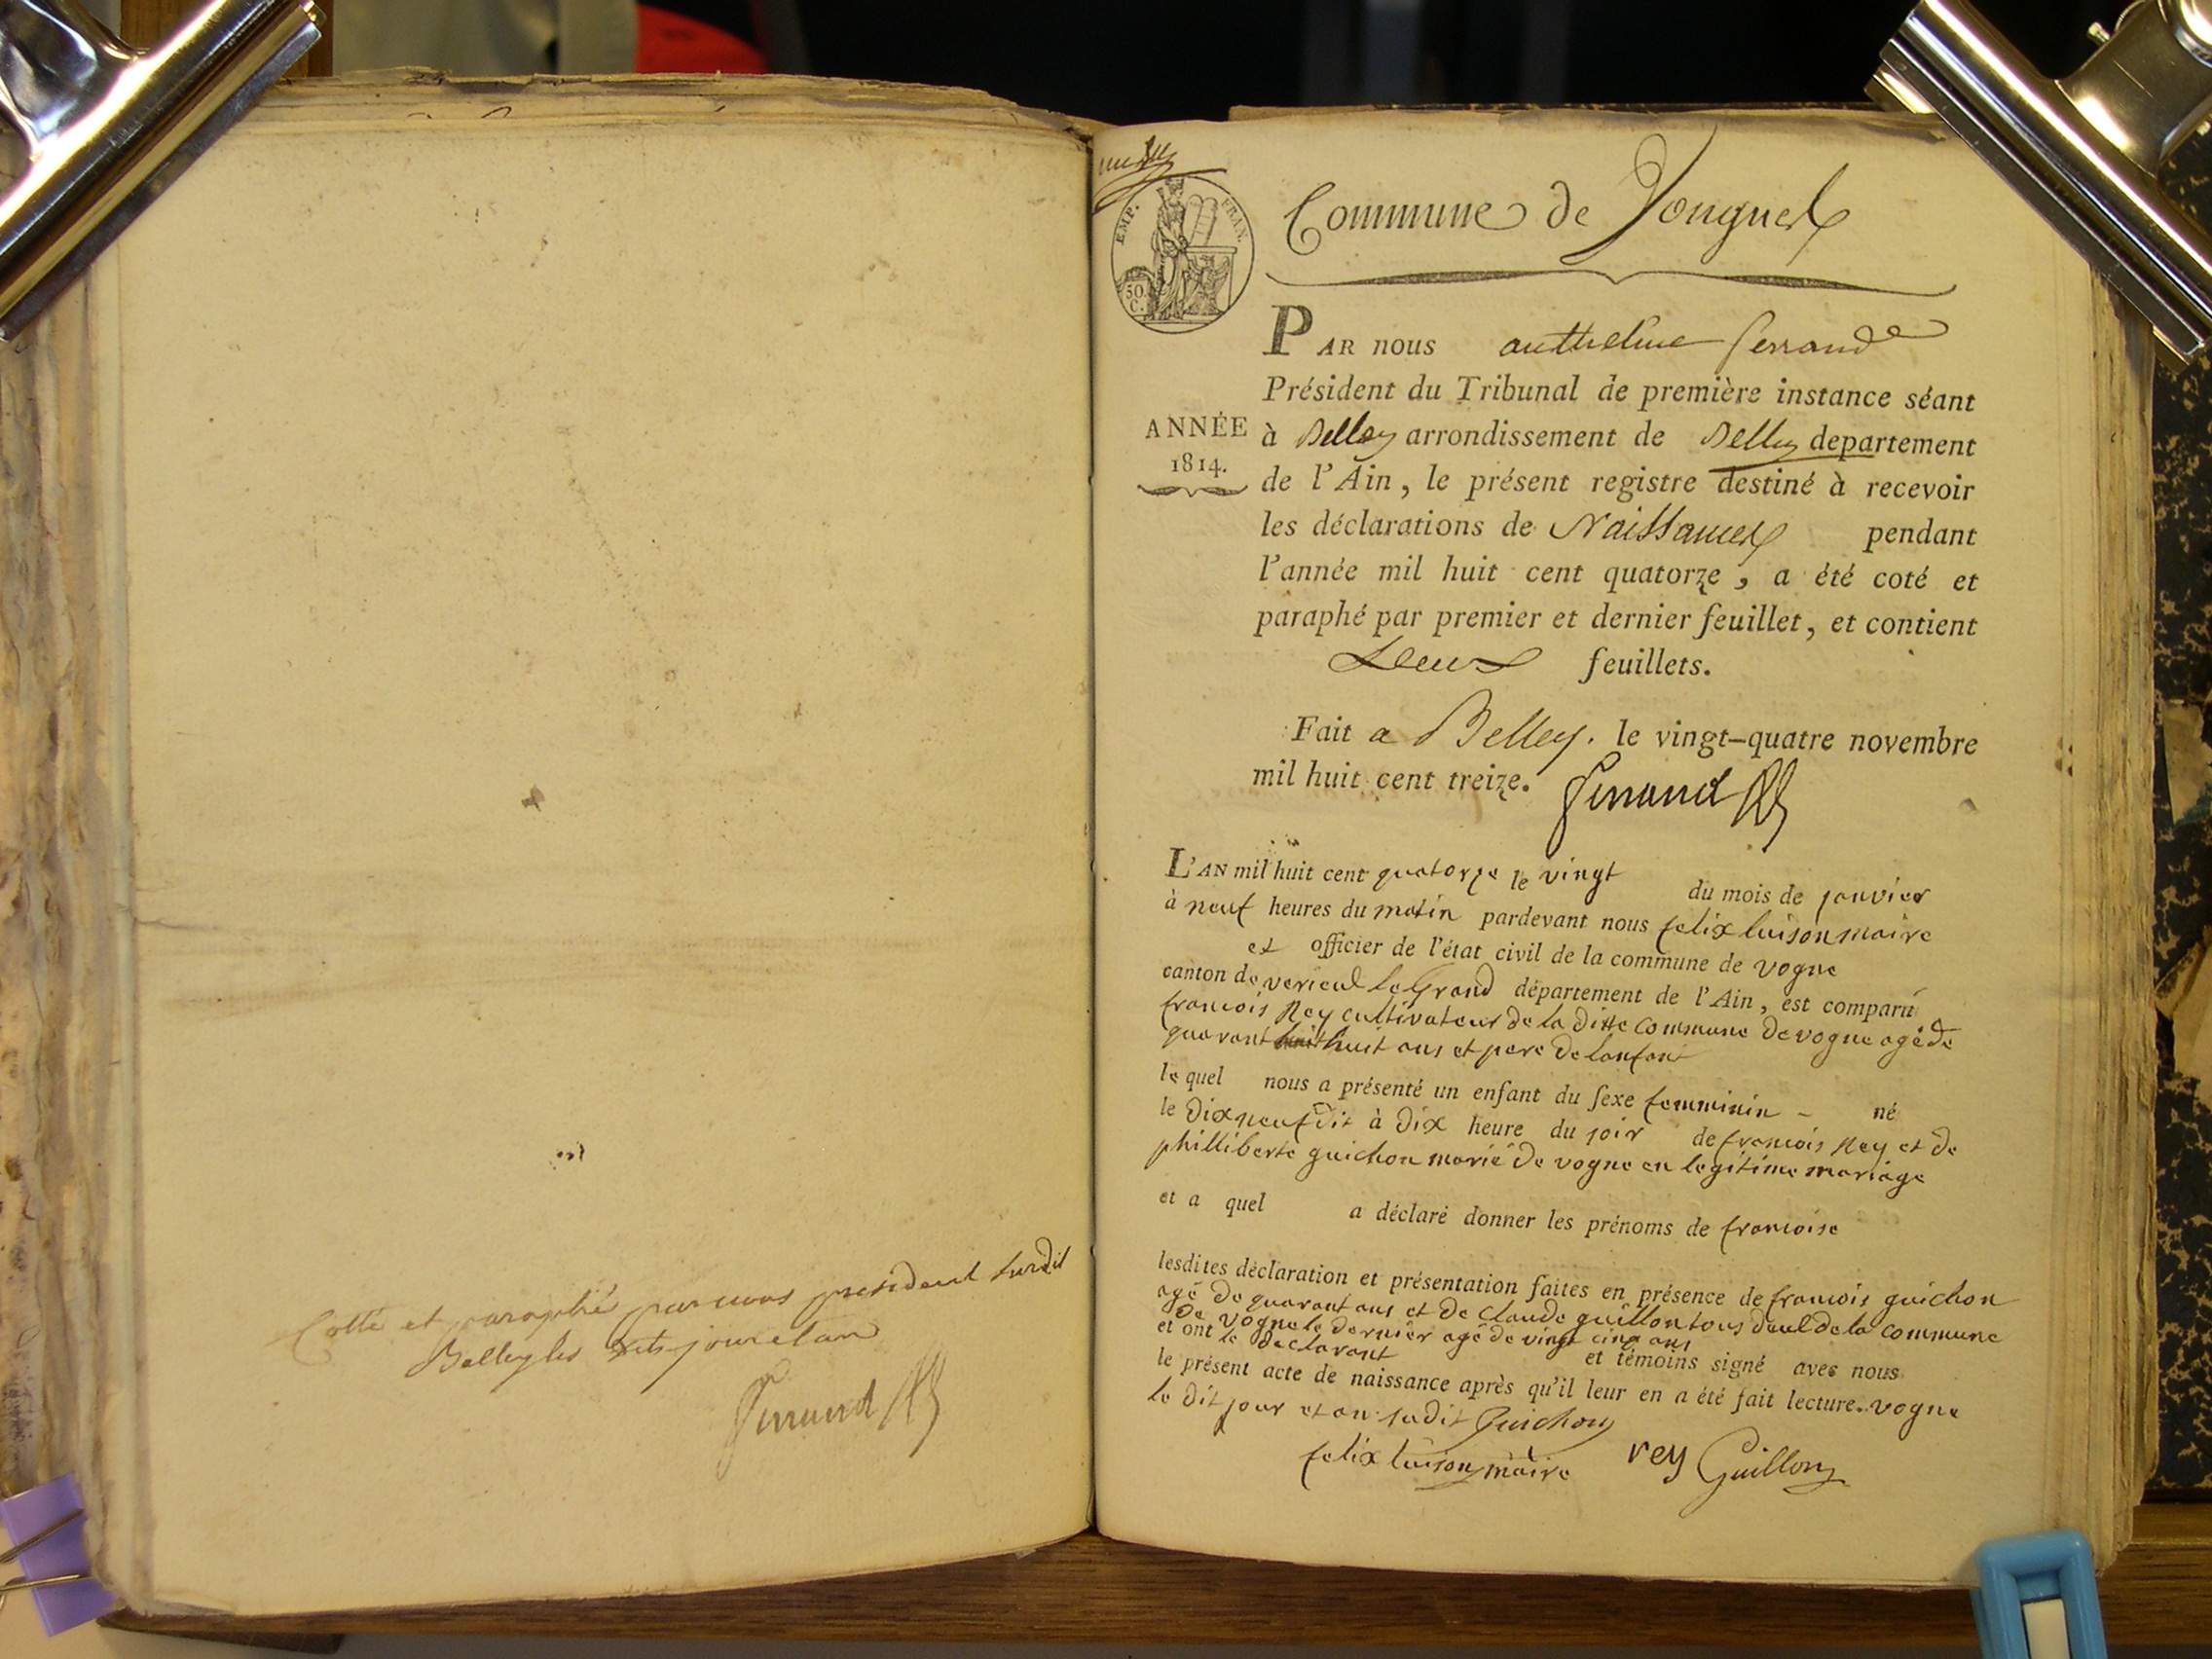 Cotté et paraphé par nous president susdit
Belley les dits jour et an
Ferrand
EMP. FRAN.
50.
C.
Commune de Vongnes
PAR nous anthelme ferrand
Président du Tribunal de première instance séant
ANNÉE
1814.
à Belley arrondissement de Belley departement
de l'Ain, le présent registre destiné à recevoir
les déclarations de Naissances pendant
l'année mil huit cent quatorze, a été coté et
paraphé par premier et dernier feuillet, et contient
Deux feuillets.
Fait a Belley. le vingt-quatre novembre
mil huit cent treize. Ferrand
L'AN mil huit cent quatorze le vingt du mois de janvier
à neuf heures du matin pardevant nous felix luison maire
et officier de l'état civil de la commune de vogne
canton de verieul le Grand département de l'Ain, est comparu
francois Rey cultivateur de la ditte commune de vogne agé de
quarant huit ans et pere de lanfant
le quel nous a présenté un enfant du sexe femminin - né
le dix neuf dit à dix heure du soir de francois Rey et de
philliberte guichon marié de vogne en legitime mariage
et a quel a déclaré donner les prénoms de francoise
lesdites déclaration et présentation faites en présence de francois guichon
agé de quarant ans et de claude guillon tous deul de la commune
de vogne le dernier agé de vingt cinq ans
et ont le declarant et témoins signé avec nous
le présent acte de naissance après qu'il leur en a été fait lecture. vogne
le dit jour et an sudit Guichon
felix luison maire rey Guillon